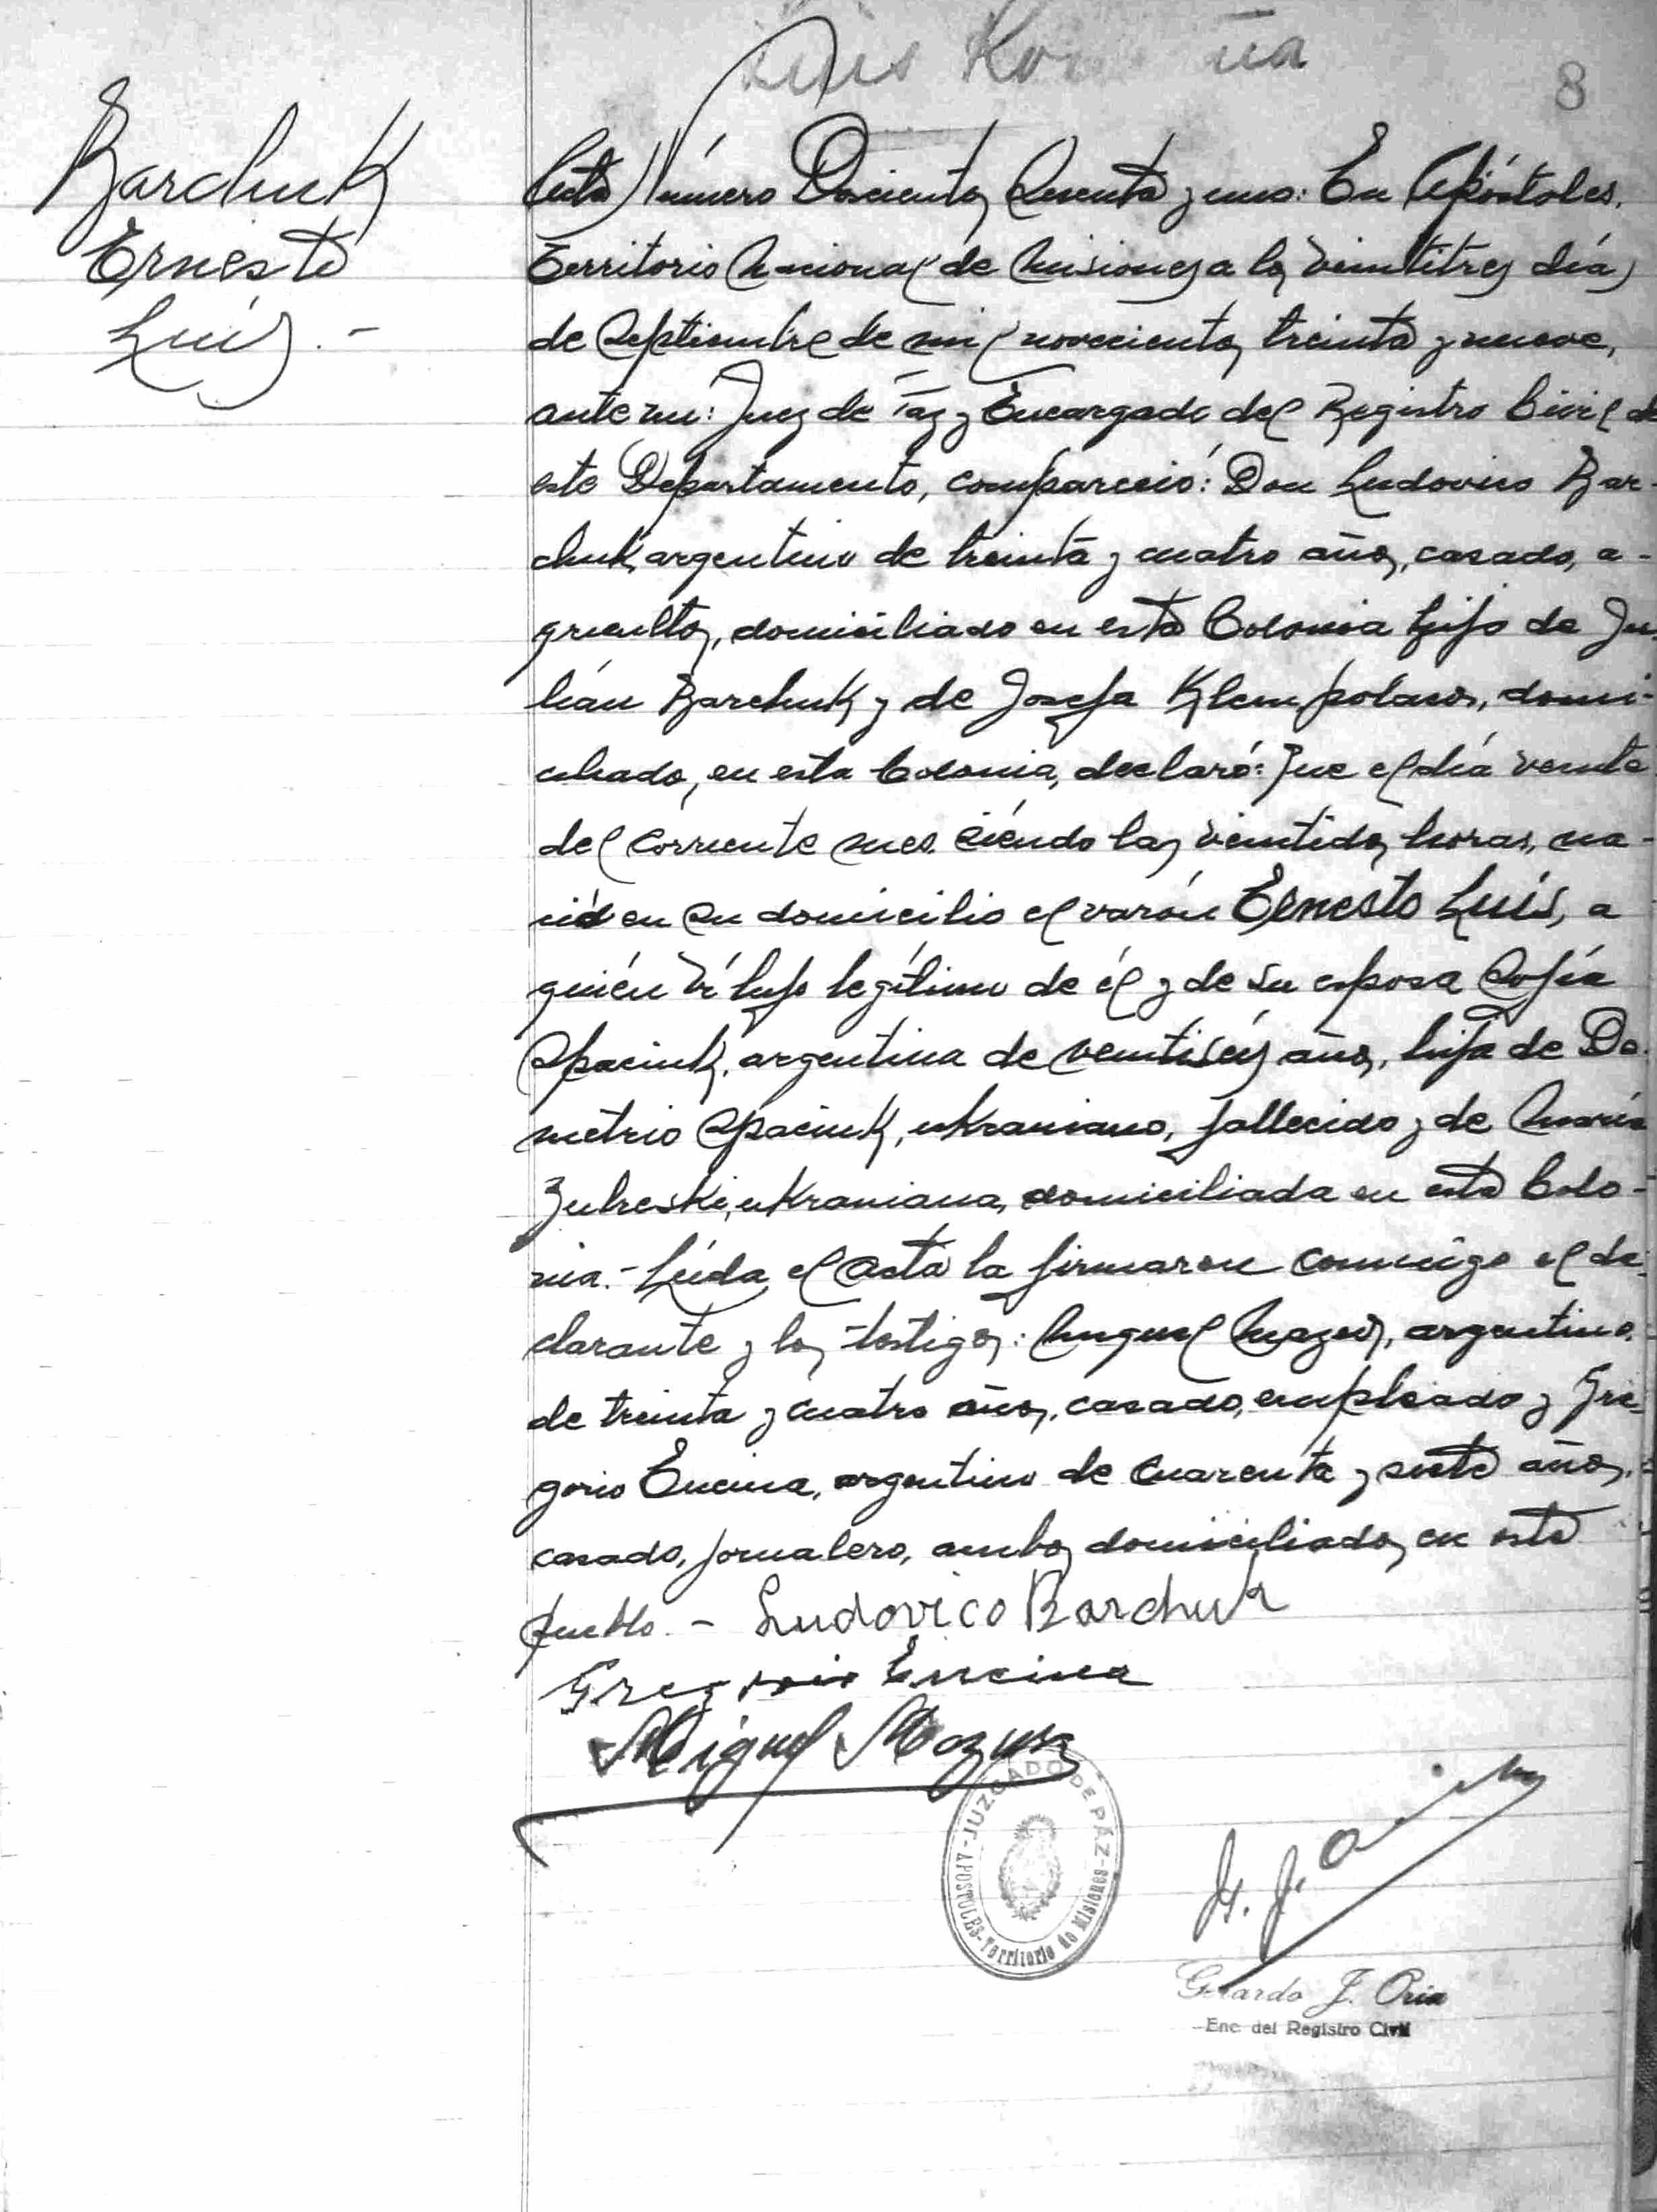 8
Barchuk
Ernesto
Luis.-
Acta Número Doscientos y uno: En Apóstoles,
Territorio Nacional de Misiones a los veintitres días
de Septiembre de mil novecientos treinta y nueve,
ante mi: Juez de Paz y Encargado del Registro Civil de
este Departamento, compareció: Don Ludovico Bar-
chuk, argentino de treinta y cuatro años, casado, a-
gricultor, domiciliado en esta Colonia hijo de Ju-
lián Barchuk y de Josefa Klem polacos, domi-
ciliados, en esta Colonia, declaró: Que el día veinte
del corriente mes siéndo las veintidos horas, na-
ció en su domicilio el varón Ernesto Luis, a
quién ví hijo legítimo de él y de su esposa Sofía
Spaciuk, argentina de veintiséis años, hija de De-
metrio Spaciuk, ukraniano, fallecido y de María
ukraniana, domiciliada en esta Colo-
nia.- Leída el Acta la firmaron conmigo el de-
clarante y los testigos: Miguel Mazur, argentino,
de treinta y cuatro años, casado, empleado y Gre-
gorio Encina, argentino de cuarenta y siete años,
casado, jornalero, ambos domiciliados en este
pueblo. - Ludovico Barchuk
Gregorio Encina
Miguel Mazur
JUZGADO DE PÁZ - APOSTOLES - Territorio de Misiones
Gerardo J. Oria
Enc. del Registro Civil